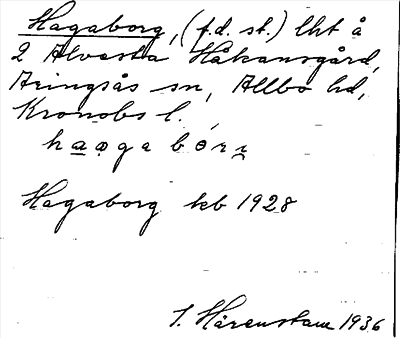 Hagaborg, (f.d. st.) lht å
2 Alvesta Håkansgård,
Aringsås sn, Allbo hd,
Kronobs l.
Hagaborg kb 1928
I. Hårenstam 1936